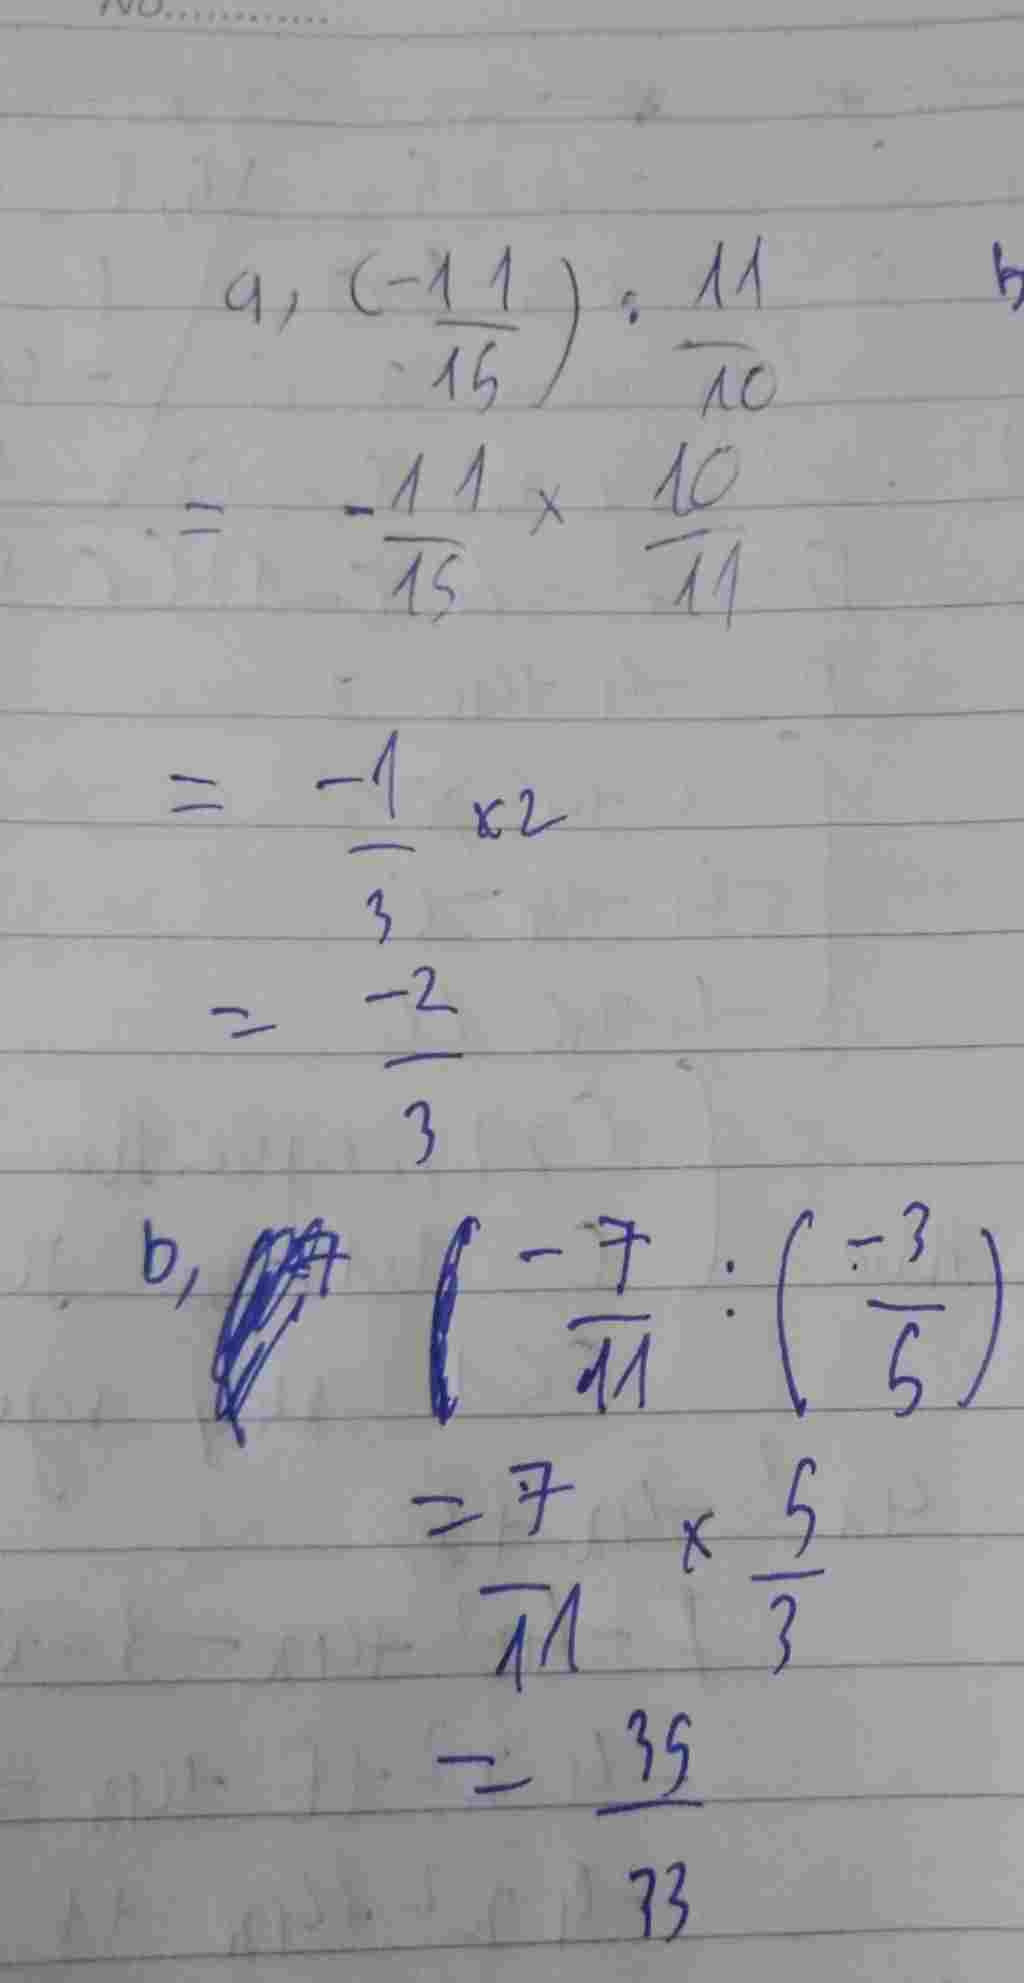 No.............
a, (-11/15) : 11/10
b
= -11/15 × 10/11
= -1/3 × 2
= -2/3
b, ( -7/11 : (-3/5)
= 7/11 × 5/3
= 35/33